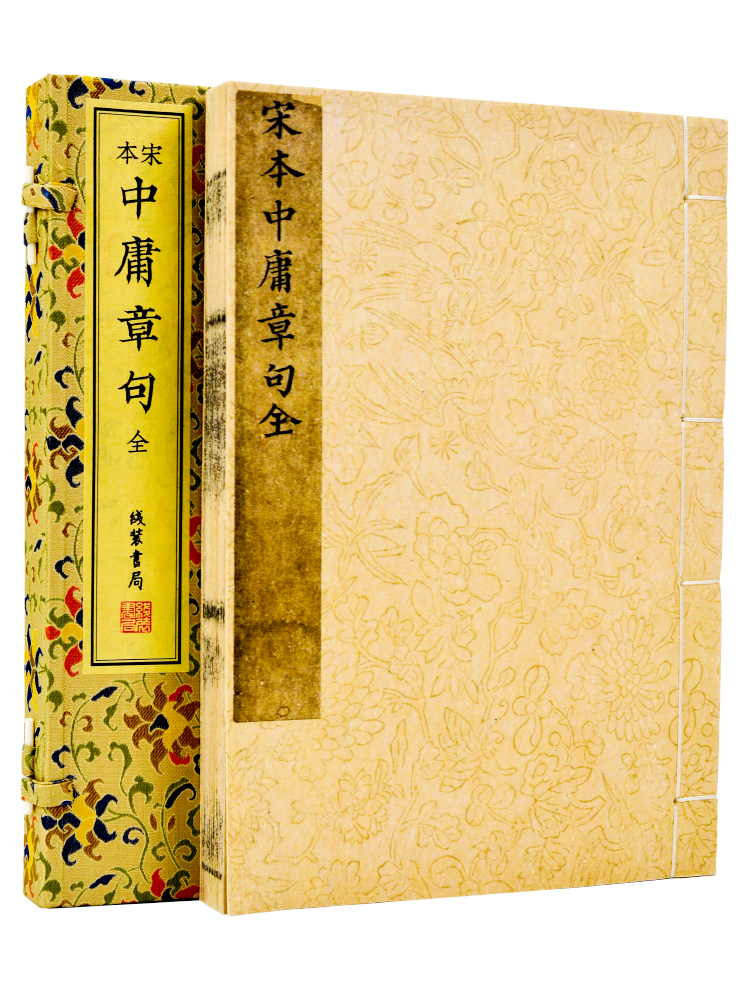 宋本
中庸章句
全
线装书局
线装书局
宋本中庸章句全